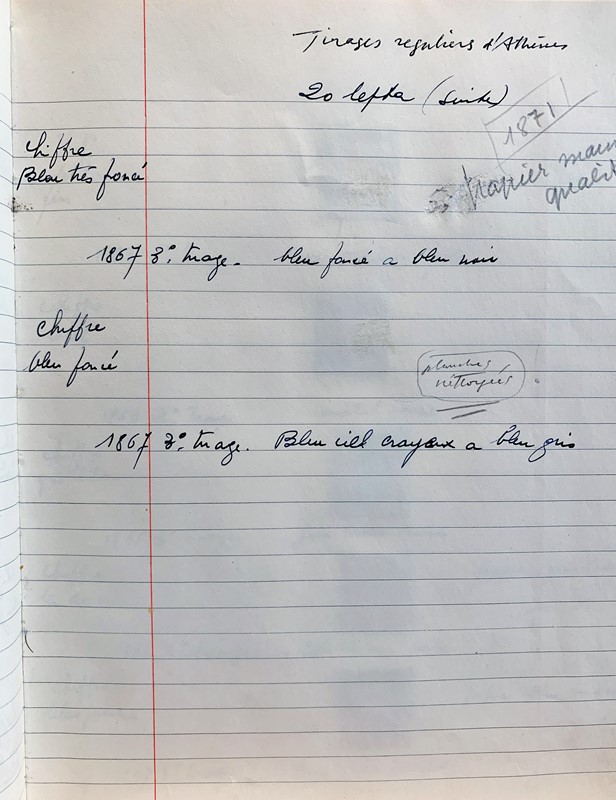 Tirages reguliers d'Athènes
20 lepta (suite)
1871
papier
qualit
chiffre
Bleu très foncé
1867 3e. tirage. bleu foncé a bleu noir
chiffre
bleu foncé
planches
nettoyées.
1867 3e. tirage. Bleu ciel crayeux a bleu gris